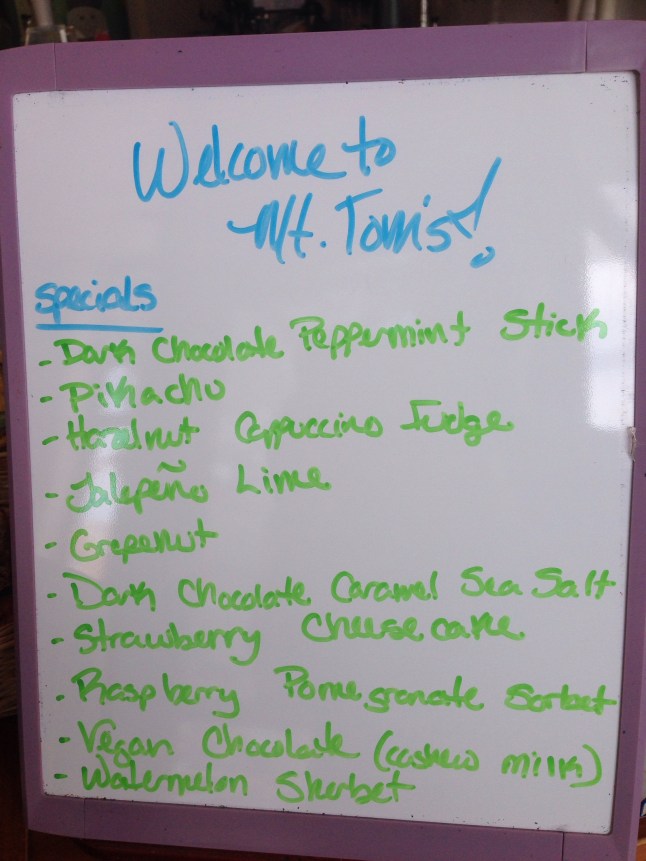 Welcome to
Mt. Tom's!
Specials
- Dark Chocolate Peppermint Stick
- Pikachu
- Hazelnut Cappuccino Fudge
- Jalepeño Lime
- Grapenut
- Dark Chocolate Caramel Sea Salt
- Strawberry Cheesecake
- Raspberry Pomegranate Sorbet
- Vegan Chocolate (cashew milk)
- Watermelon Sherbet